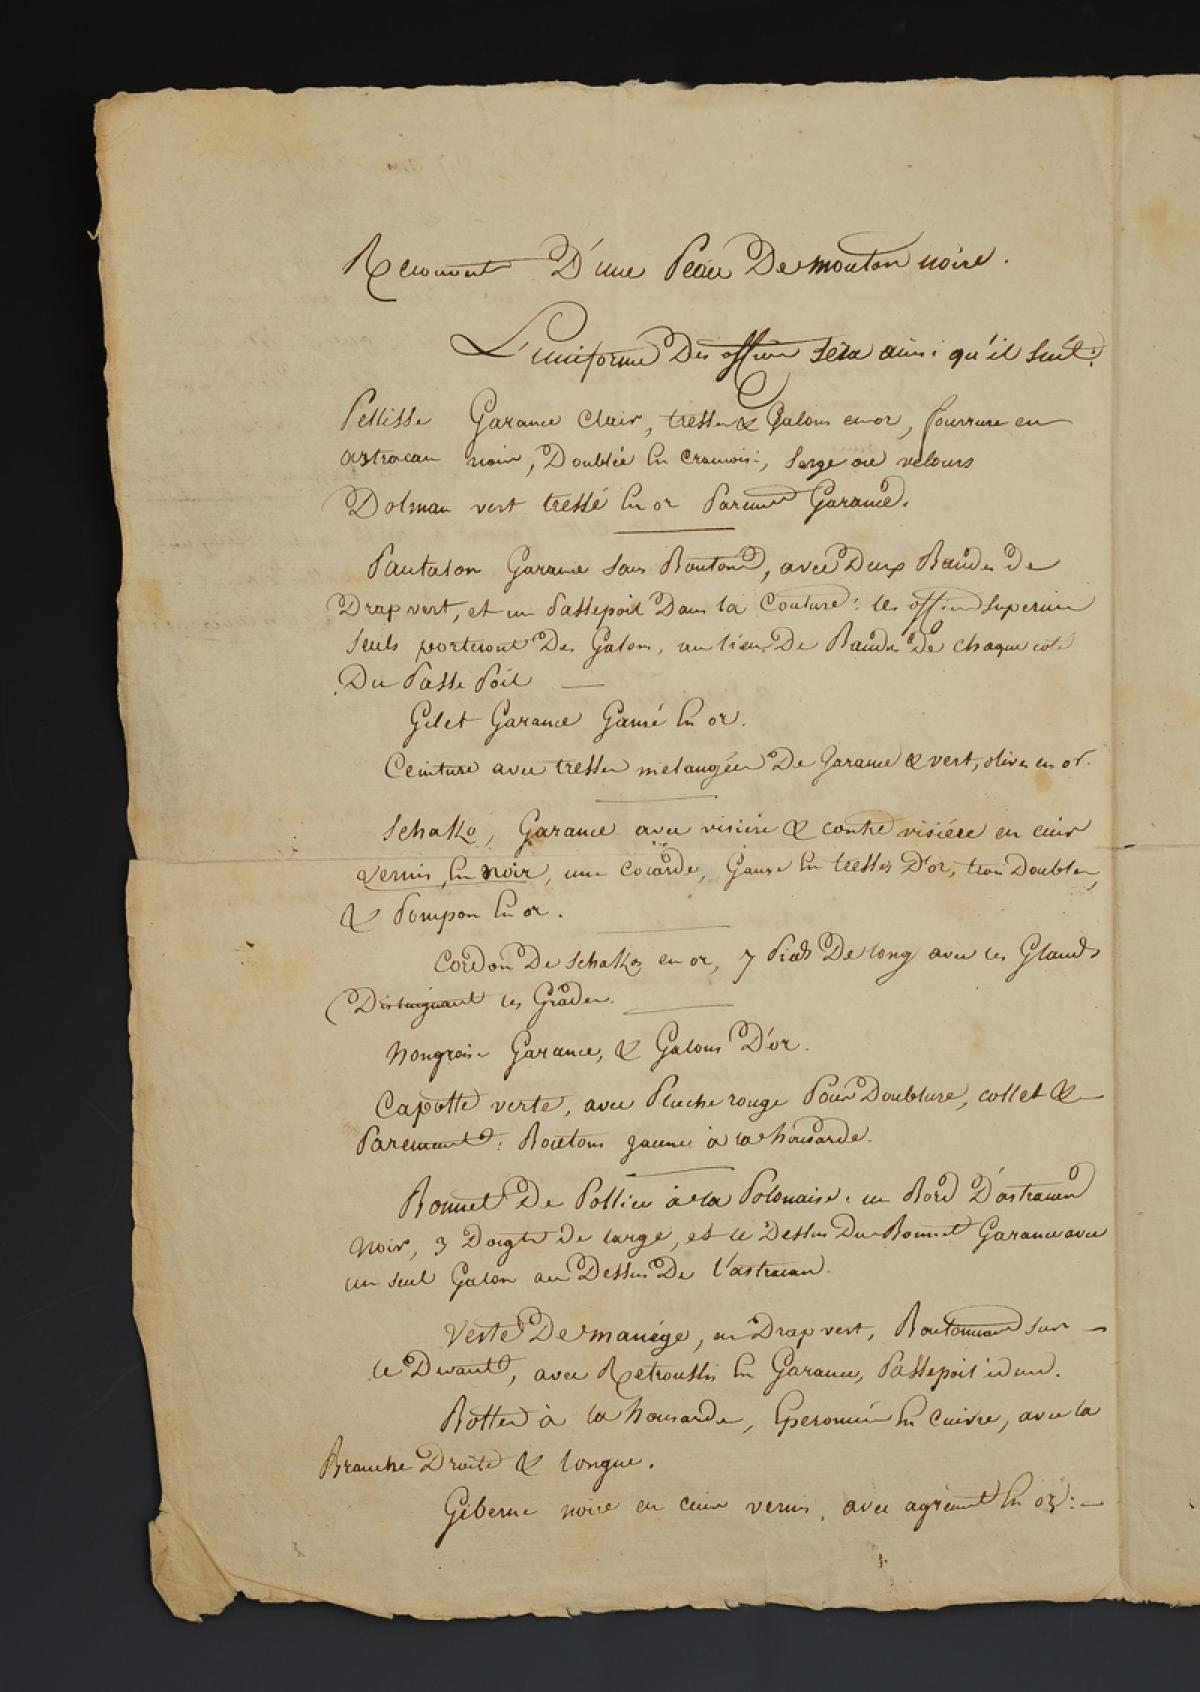 Recouvert D'une Peau De mouton noire.
L'uniforme Des officiers sera ainsi qu'il suit:
Pellisse Garance Clair, tresses & Galons en or, fourrure en
astracan noir, Doublée En cramoisi, serge ou velours
Dolman vert tressé En or Parement Garance.
Pantalon Garance sans Boutons, avec Deux Bandes de
Drap vert, et un Passepoil Dans la Couture: les officiers superieurs
seuls porteront Des Galons, au lieu De Bandes De chaque coté
Du Passe Poil —
Gilet Garance Gansé En or.
Ceinture avec tresses melangées De Garance & vert, olives en or.
Schako, Garance avec visiere & contre visière en cuir
vernis, En noir, une cocarde, Ganse En tresses D'or, trois Doubles,
& Pompon En or.
Cordon De Schako en or, 7 Pieds De long avec les Glands
Distinguant les Grades.
hongroise Garance, & Galons D'or.
Capotte verte, avec Pluche rouge Pour Doublure, collet &
Parements: Boutons jaunes à la housarde.
Bonnet De Pollice à la Polonaise. un Bord D'astracan
Noir, 3 Doigts De large, et le Dessus Du Bonnet Garance avec
un seul Galon au Dessus De l'astracan.
Veste De manége, en Drap vert, Boutonnant sur —
le Devant, avec Retroussis En Garance, Passepoil idem.
Bottes à la housarde, Eperonnées En Cuivre, avec la
Branche Droite & longue.
Giberne noire en cuir vernis, avec agrément En or: —